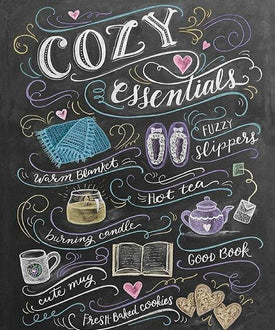 COZY
Essentials
FUZZY
slippers
Warm Blanket
Hot tea
burning candle
Good Book
cute mug
Fresh-Baked cookies